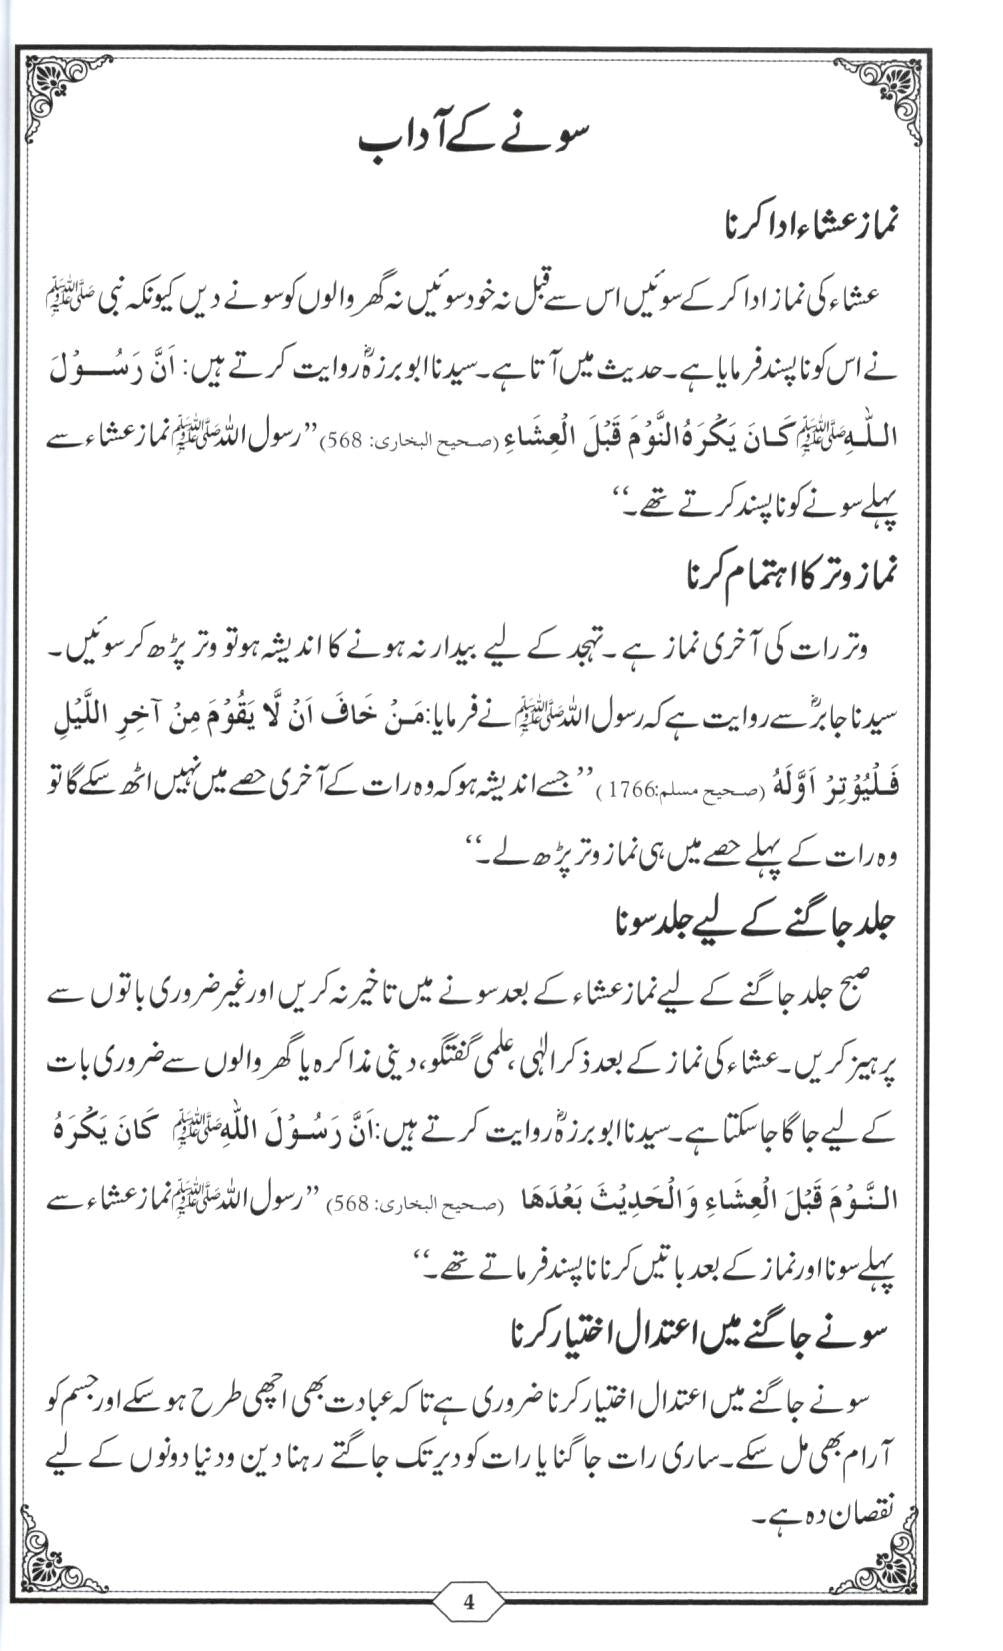 سونے کے آداب
نماز عشاء ادا کرنا
عشاء کی نماز ادا کر کے سوئیں اس سے قبل نہ خود سوئیں نہ گھر والوں کو سونے دیں کیونکہ نبی ﷺ
نے اس کو ناپسند فرمایا ہے۔ حدیث میں آتا ہے۔ سیدنا ابو برزہؓ روایت کرتے ہیں: اَنَّ رَسُوْلَ
اللّٰہِ ﷺ کَانَ یَکْرَہُ النَّوْمَ قَبْلَ الْعِشَاءِ (صحیح البخاری: 568) ’’رسول اللہ ﷺ نماز عشاء سے
پہلے سونے کو ناپسند کرتے تھے۔‘‘
نماز وتر کا اہتمام کرنا
وتر رات کی آخری نماز ہے۔ تہجد کے لیے بیدار نہ ہونے کا اندیشہ ہو تو وتر پڑھ کر سوئیں۔
سیدنا جابرؓ سے روایت ہے کہ رسول اللہ ﷺ نے فرمایا: مَنْ خَافَ اَنْ لَّا یَقُوْمَ مِنْ آخِرِ اللَّیْلِ
فَلْیُوْتِرْ اَوَّلَہُ (صحیح مسلم:1766) ’’جسے اندیشہ ہو کہ وہ رات کے آخری حصے میں نہیں اٹھ سکے گا تو
وہ رات کے پہلے حصے میں ہی نماز وتر پڑھ لے۔‘‘
جلد جاگنے کے لیے جلد سونا
صبح جلد جاگنے کے لیے نماز عشاء کے بعد سونے میں تاخیر نہ کریں اور غیر ضروری باتوں سے
پرہیز کریں۔ عشاء کی نماز کے بعد ذکر الٰہی، علمی گفتگو، دینی مذاکرہ یا گھر والوں سے ضروری بات
کے لیے جاگا جا سکتا ہے۔ سیدنا ابو برزہؓ روایت کرتے ہیں: اَنَّ رَسُوْلَ اللّٰہِ ﷺ کَانَ یَکْرَہُ
النَّوْمَ قَبْلَ الْعِشَاءِ وَالْحَدِیْثَ بَعْدَھَا (صحیح البخاری: 568) ’’رسول اللہ ﷺ نماز عشاء سے
پہلے سونا اور نماز کے بعد باتیں کرنا ناپسند فرماتے تھے۔‘‘
سونے جاگنے میں اعتدال اختیار کرنا
سونے جاگنے میں اعتدال اختیار کرنا ضروری ہے تاکہ عبادت بھی اچھی طرح ہو سکے اور جسم کو
آرام بھی مل سکے۔ ساری رات جاگنا یا رات کو دیر تک جاگتے رہنا دین و دنیا دونوں کے لیے
نقصان دہ ہے۔
4